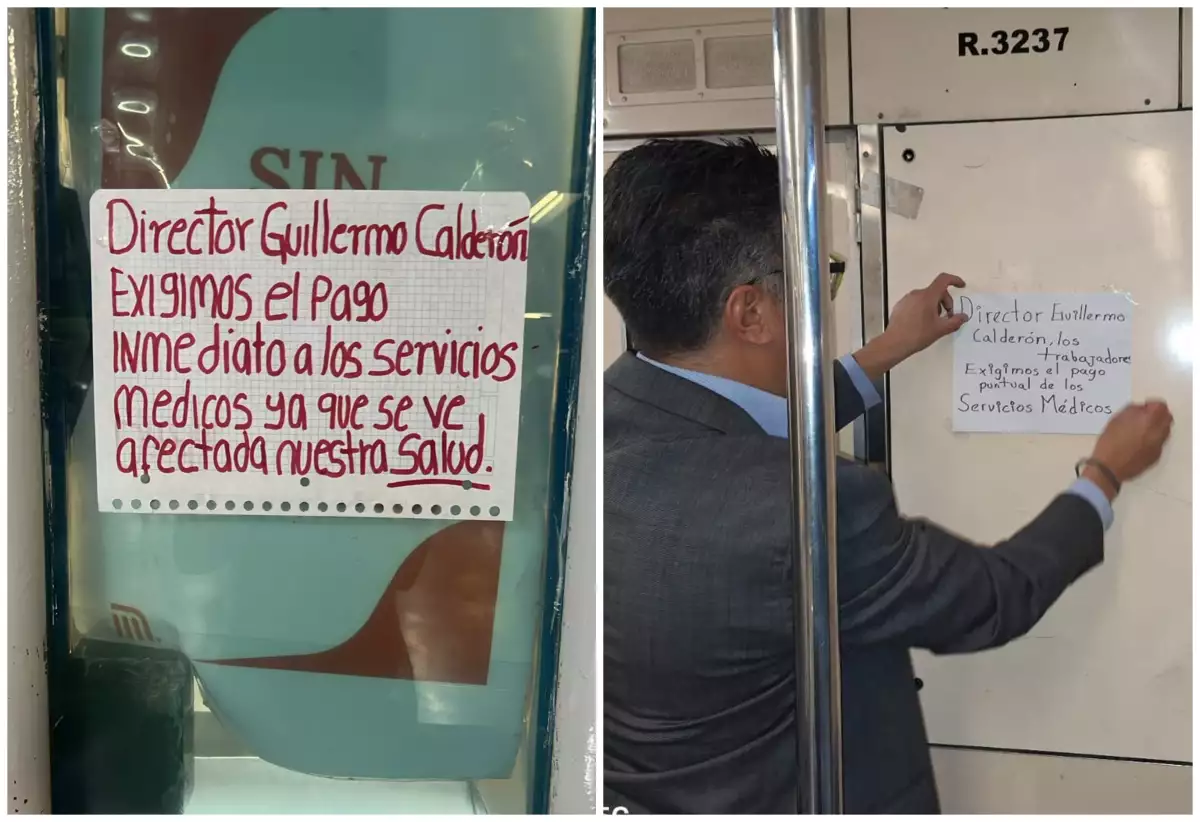 SIN
Director Guillermo Calderón
EXIGIMOS el Pago
INmediato a los servicios
Medicos ya que se ve
afectada nuestra Salud.
R.3237
Director Guillermo
Calderón, los
trabajadore
Exigimos el pago
puntual de los
Servicios Médicos